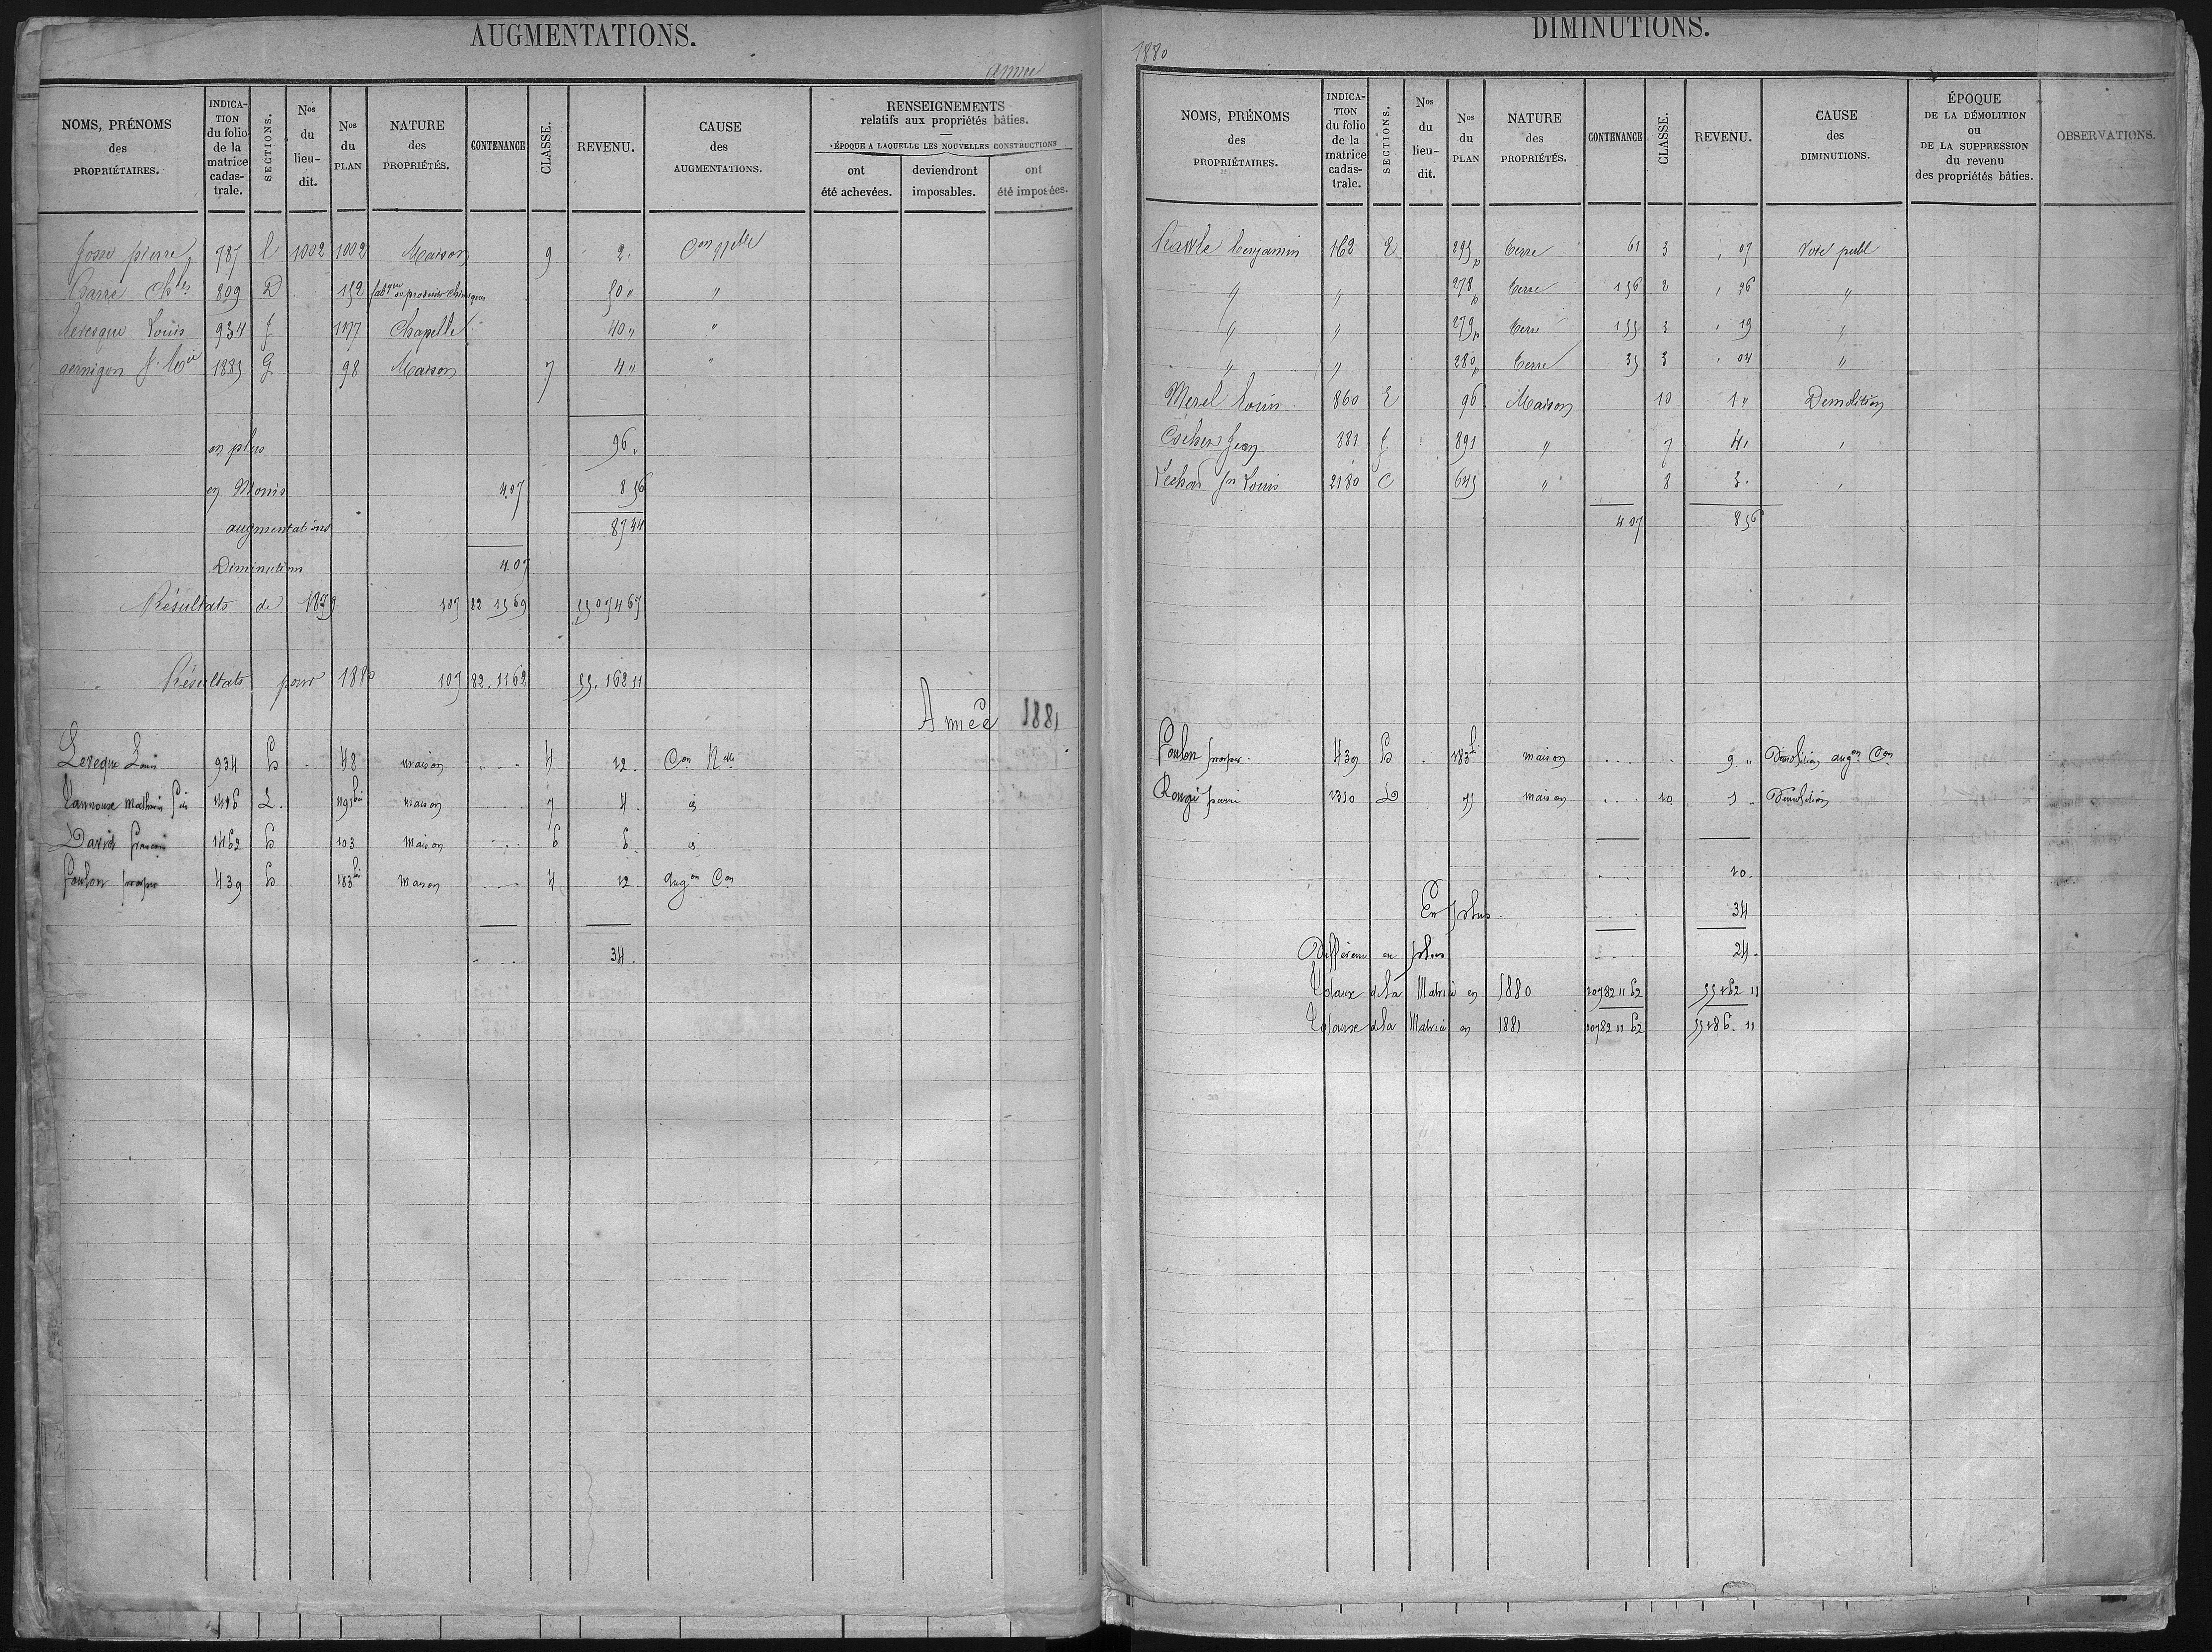 AUGMENTATIONS.
Année
NOMS, PRÉNOMS des PROPRIÉTAIRES.
INDICA-TION du folio de la matrice cadas-trale.
SECTIONS.
Nos du lieu-dit.
Nos du PLAN
NATURE des PROPRIÉTÉS.
CONTENANCE
CLASSE.
REVENU.
CAUSE des AUGMENTATIONS.
RENSEIGNEMENTS relatifs aux propriétés bâties.
ÉPOQUE A LAQUELLE LES NOUVELLES CONSTRUCTIONS
ont été achevées.
deviendront imposables.
ont été imposées.
Josse pierre 787 C 1002 1002 Maison 9 2 Con Nelle
Barre Chles 809 D 152 fabque de produits chimiques 50 "
Levesque Louis 934 f 1177 Chapelle 40 "
gernigon 1885 G 98 Maison 7 4 "
en plus 96
en Moins 4.07 8 56
augmentations 87 44
Diminution 4.07
Résultats de 1879 107 82 15 69 55074 67
Résultats pour 1880 107 82.1162 55.162 11
Année 1881
Leveque Louis 934 b 48 maison 4 12 Con Nelle
1416 L 191bis maison 7 4 id
David francois 1462 b 103 maison 6 6 id
foulon prosper 439 b 183bis maison 4 12 augon Con
34
DIMINUTIONS.
1880
NOMS, PRÉNOMS des PROPRIÉTAIRES.
INDICA-TION du folio de la matrice cadas-trale.
SECTIONS.
Nos du lieu-dit.
Nos du PLAN
NATURE des PROPRIÉTÉS.
CONTENANCE
CLASSE.
REVENU.
CAUSE des DIMINUTIONS.
ÉPOQUE DE LA DÉMOLITION ou DE LA SUPPRESSION du revenu des propriétés bâties.
OBSERVATIONS.
benjamin 162 E 295p terre 61 3 , 07 Voie publ
" " 278p terre 156 2 , 26 "
" " 279p terre 155 3 , 19 "
" " 280p terre 35 3 , 04 "
Merel Louis 860 E 96 Maison 10 1 " Demolition
Cocher Jean 881 f 891 " 7 4
Lechat Jn Louis 2180 C 645 " 8 3
4 07 8 56
Foulon prosper 439 b 183bis maison 9 " Démolition augon Con
Rougé pierre 1310 D 75 maison 10 1 Démolition
10
En plus 34
Différence en plus 24
Totaux de la Matrice en 1880 10782 11 62 55162 11
Totaux de la Matrice en 1881 10782 11 62 55186. 11